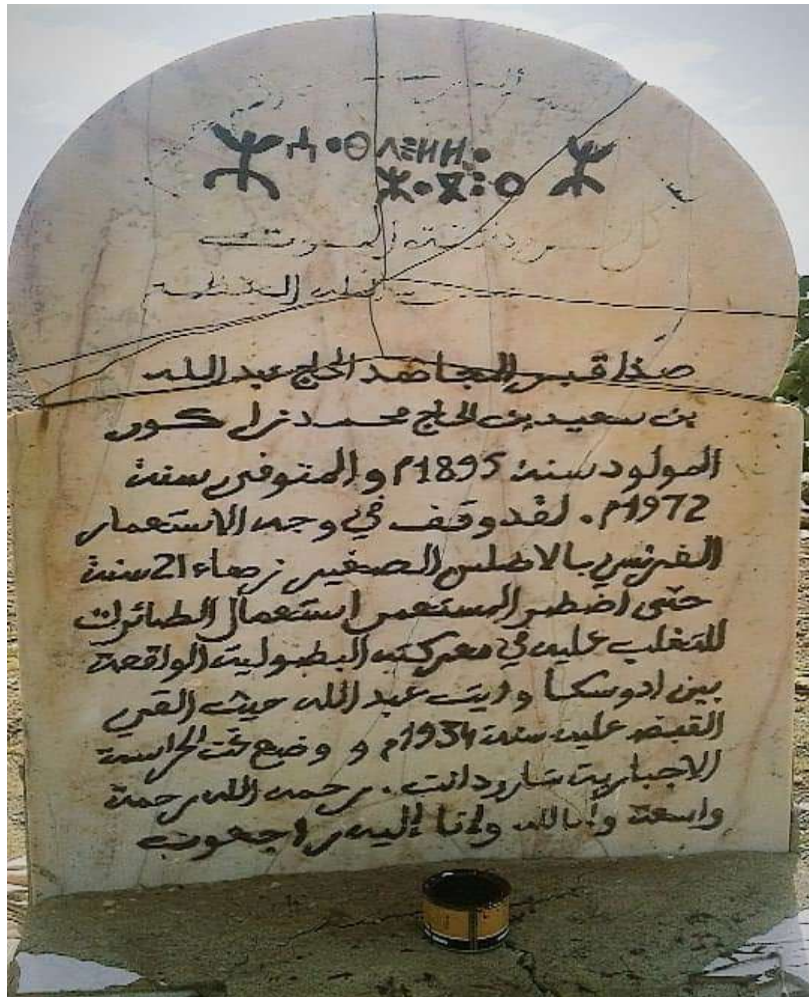 ⵣ ⵄⴰⴱⴷⵉⵍⵍⴰ ⵣ
ⵣⴰⴳⵓⵔ
كل نفس ذائقة الموت
الله العظيم
هذا قبر المجاهد الحاج عبد الله
بن سعيد بن الحاج محمد زاكور
المولود سنة 1895م و المتوفى سنة
1972م. لقد وقف في وجه الاستعمار
الفرنسي بالاطلس الصغير زهاء 21 سنة
حتى اضطر المستعمر استعمال الطائرات
للتغلب عليه في معركته البطولية الواقعة
بين ادوسكا وايت عبد الله حيث القي
القبض عليه سنة 1934م و وضع تحت الحراسة
الاجبارية تارودانت. رحمه الله رحمة
واسعة وانا لله وإنا إليه راجعون